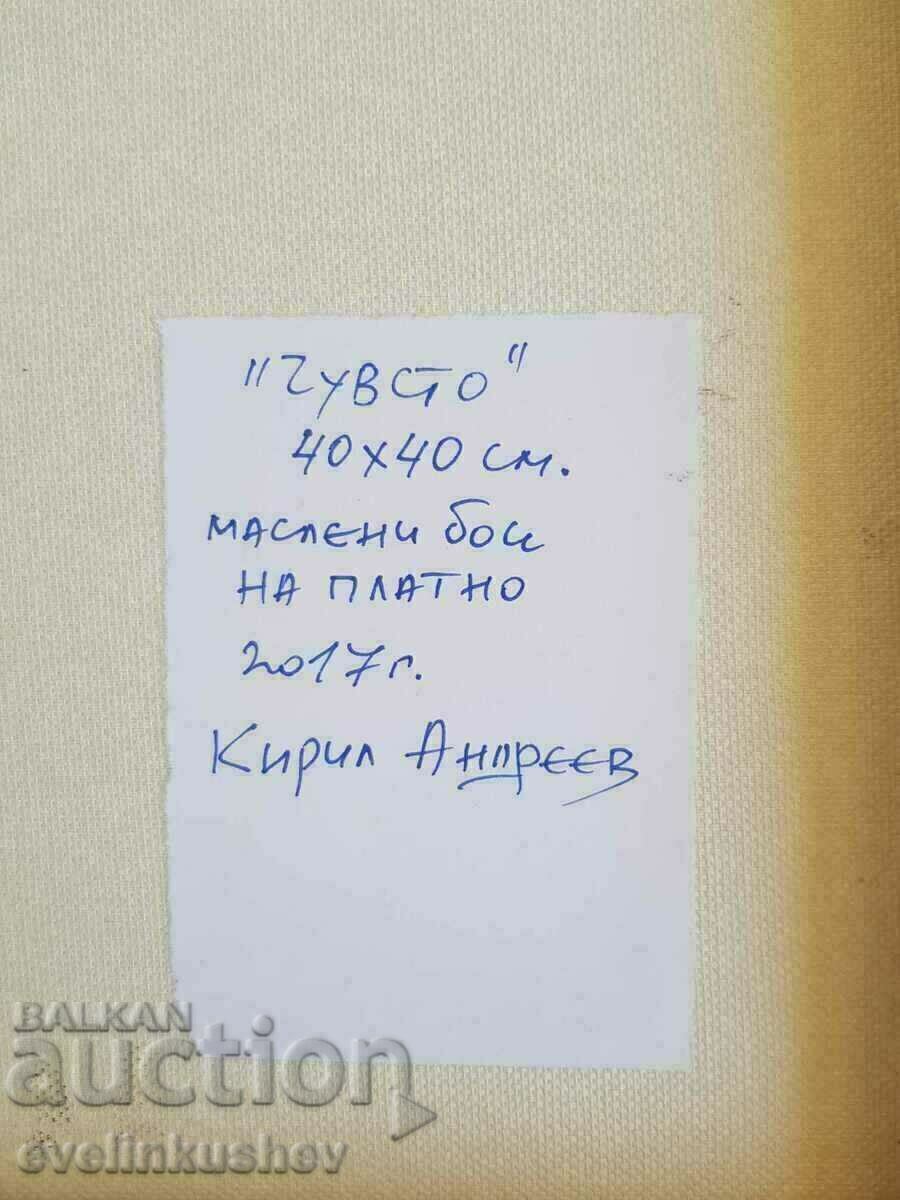 "Чувсто"
40x40 см.
маслени бои
на платно
2017г.
Кирил Андреев
BALKAN
auction
evelinkushev